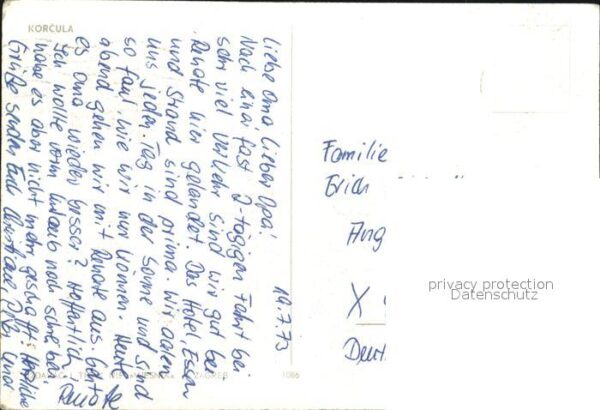 KORČULA
19.7.73
Liebe Oma, lieber Opa!
Nach einer fast 2-tägigen Fahrt bei
sehr viel Verkehr sind wir gut bei
Renate hier gelandet. Das Hotel, Essen
und Strand sind prima. Wir aalen
uns jeden Tag in der Sonne und sind
so faul wie wir nur können. Heute
abend gehen wir mit Renate aus. Geht
es Oma wieder besser? Hoffentlich!
Ich wollte vorm Urlaub noch schreiben,
habe es aber nicht mehr geschafft. Herzliche
Grüße senden Euch Christiane, und
Renate
Familie
Erich
Aug
X
Deut
privacy protection
Datenschutz
ZAGREB
1086